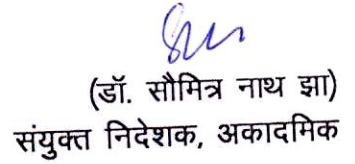 (डॉ. सौमित्र नाथ झा)
संयुक्त निदेशक, अकादमिक